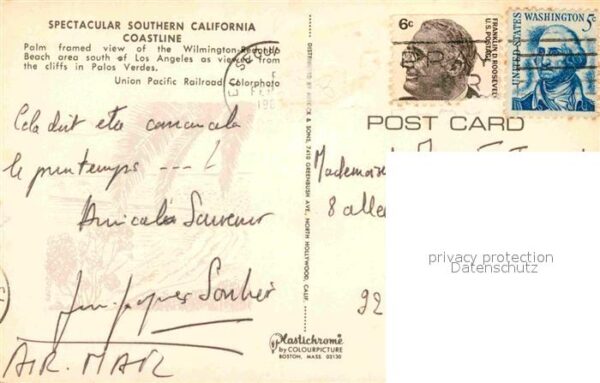 SPECTACULAR SOUTHERN CALIFORNIA
COASTLINE
Palm framed view of the Wilmington-Redondo
Beach area south of Los Angeles as viewed from
the cliffs in Palos Verdes.
Union Pacific Railroad Colorphoto
6c
U.S. POSTAGE
FRANKLIN D. ROOSEVELT
WASHINGTON
5c
UNITED STATES
POST CARD
& SONS, 7410 GREENBUSH AVE., NORTH HOLLYWOOD, CALIF.
Cela doit etre
le printemps ---!
Amical Souvenir
Jean-Jacques
AIR-MAIL
Mademoi
8 allée
92
privacy protection
Datenschutz
Plastichrome
by COLOURPICTURE
BOSTON, MASS 02130